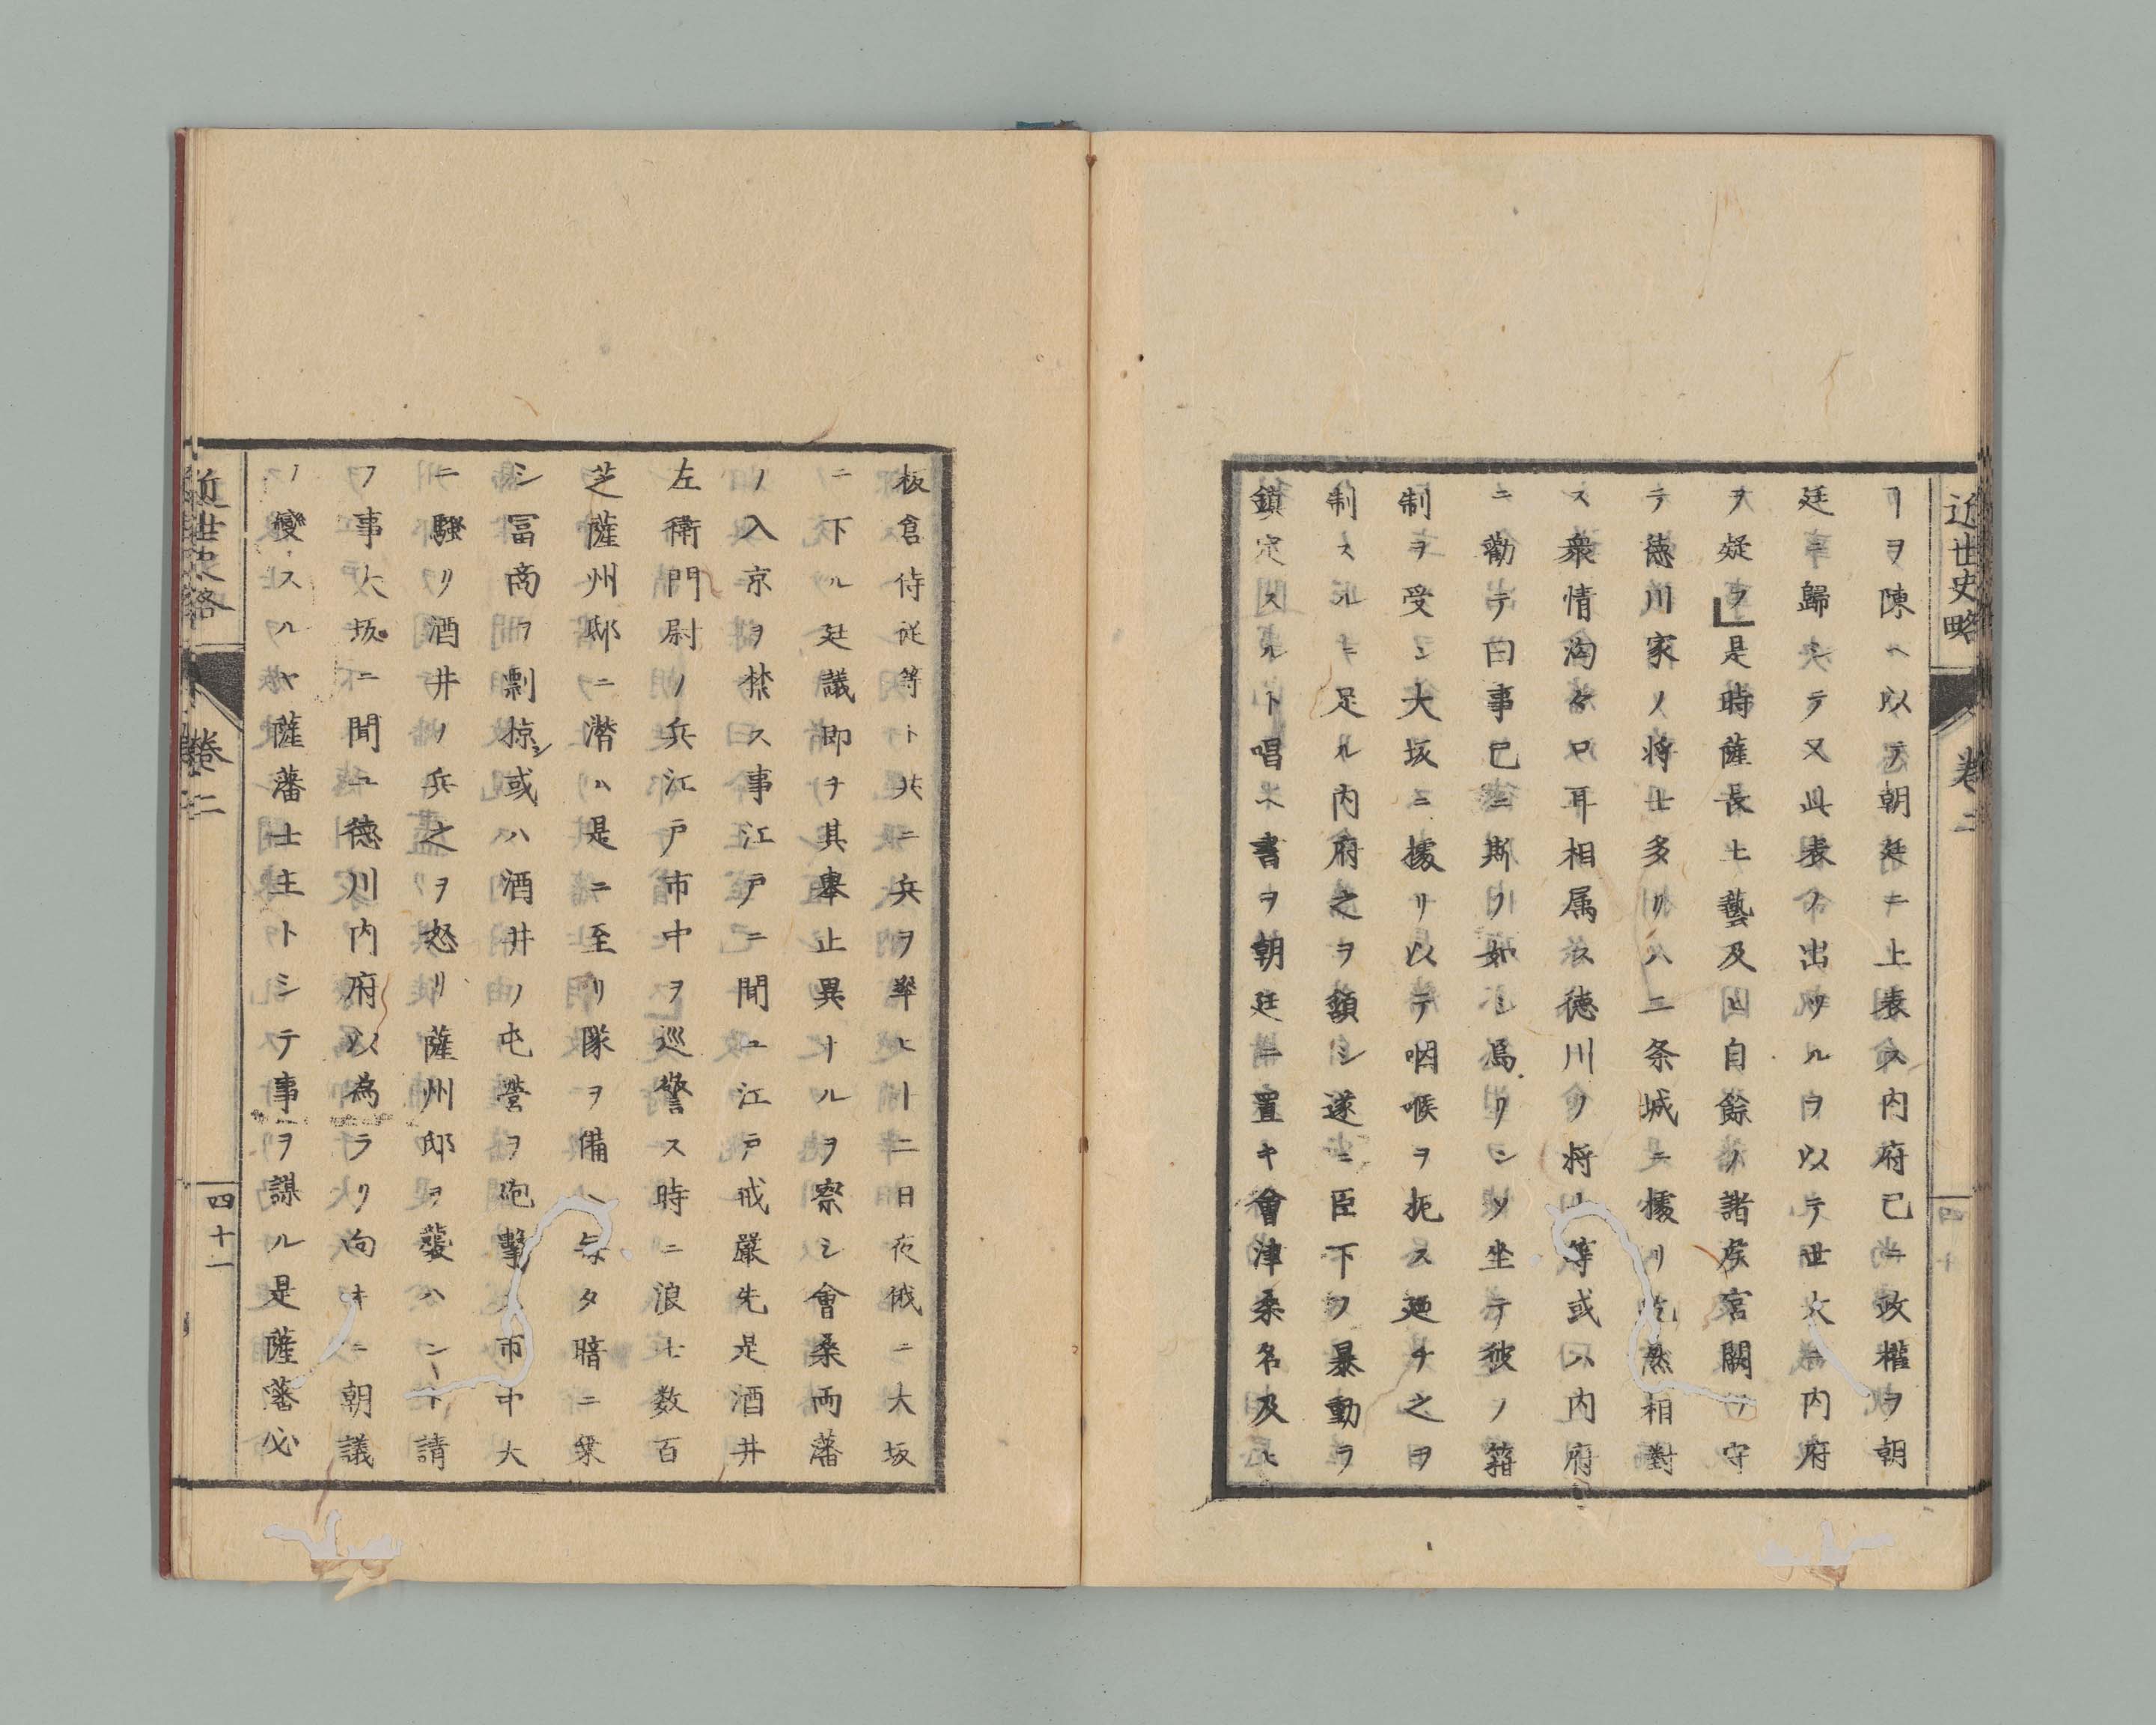 近世史略
巻二
四十
ヿヲ陳ヘ以テ朝廷ニ上表ス内府已ニ政權ヲ朝
廷ニ歸シテ又此表ノ出ツルヲ以テ世大ニ内府
ヲ疑フ是時薩長土藝及ヒ自餘ノ諸矦宮闕ヲ守
テ徳川家ノ将士多リハ二条城ニ據リ然相對
ス衆情洶々口耳相属ス徳川ノ将士等或ハ内府
ニ勸テ曰事已ニ斯ノ如シ焉クンソ坐テ彼ノ箝
制ヲ受ン大坂ニ據リ以テ咽喉ヲ扼ス廼チ之ヲ
制スルニ足ル内府之ヲ頷シ遂ニ臣下ノ暴動ヲ
鎮定スルト唱ヘ書ヲ朝廷ニ置キ會津桑名及ヒ
板倉侍従等ト共ニ兵ヲ率ヒ十二日夜俄ニ大坂
ニ下ル廷議即チ其舉止異ナルヲ察シ會桑両藩
ノ入京ヲ禁ス事江戸ニ聞ユ江戸戒嚴先是酒井
左衛門尉ノ兵江戸市中ヲ巡警ス時ニ浪士数百
芝薩州邸ニ潜ハ是ニ至リ隊ヲ備ヘ与タ暗ニ乗
シ冨商ヲ剽掠シ或ハ酒井ノ屯營ヲ砲擊ス市中大
ニ騒リ酒井ノ兵之ヲ怒リ薩州邸ヲ襲ハント請
フ事大坂ニ聞ユ徳川内府以為ラク向キニ朝議
ノ變スルヤ薩藩士主トシテ事ヲ謀ル是薩藩必
近世史略
巻二
四十一